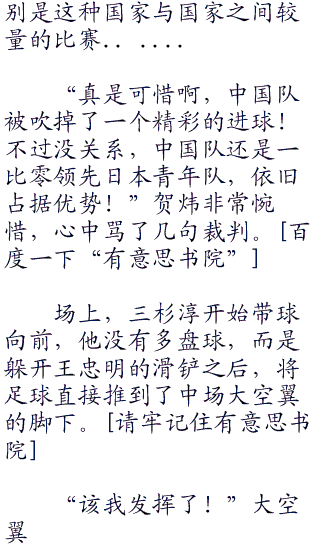 别是这种国家与国家之间较
量的比赛.. ....
“真是可惜啊，中国队
被吹掉了一个精彩的进球！
不过没关系，中国队还是一
比零领先日本青年队，依旧
占据优势！”贺炜非常惋
惜，心中骂了几句裁判。[百
度一下“有意思书院”]
场上，三杉淳开始带球
向前，他没有多盘球，而是
躲开王忠明的滑铲之后，将
足球直接推到了中场大空翼
的脚下。[请牢记住有意思书
院]
“该我发挥了！”大空
翼